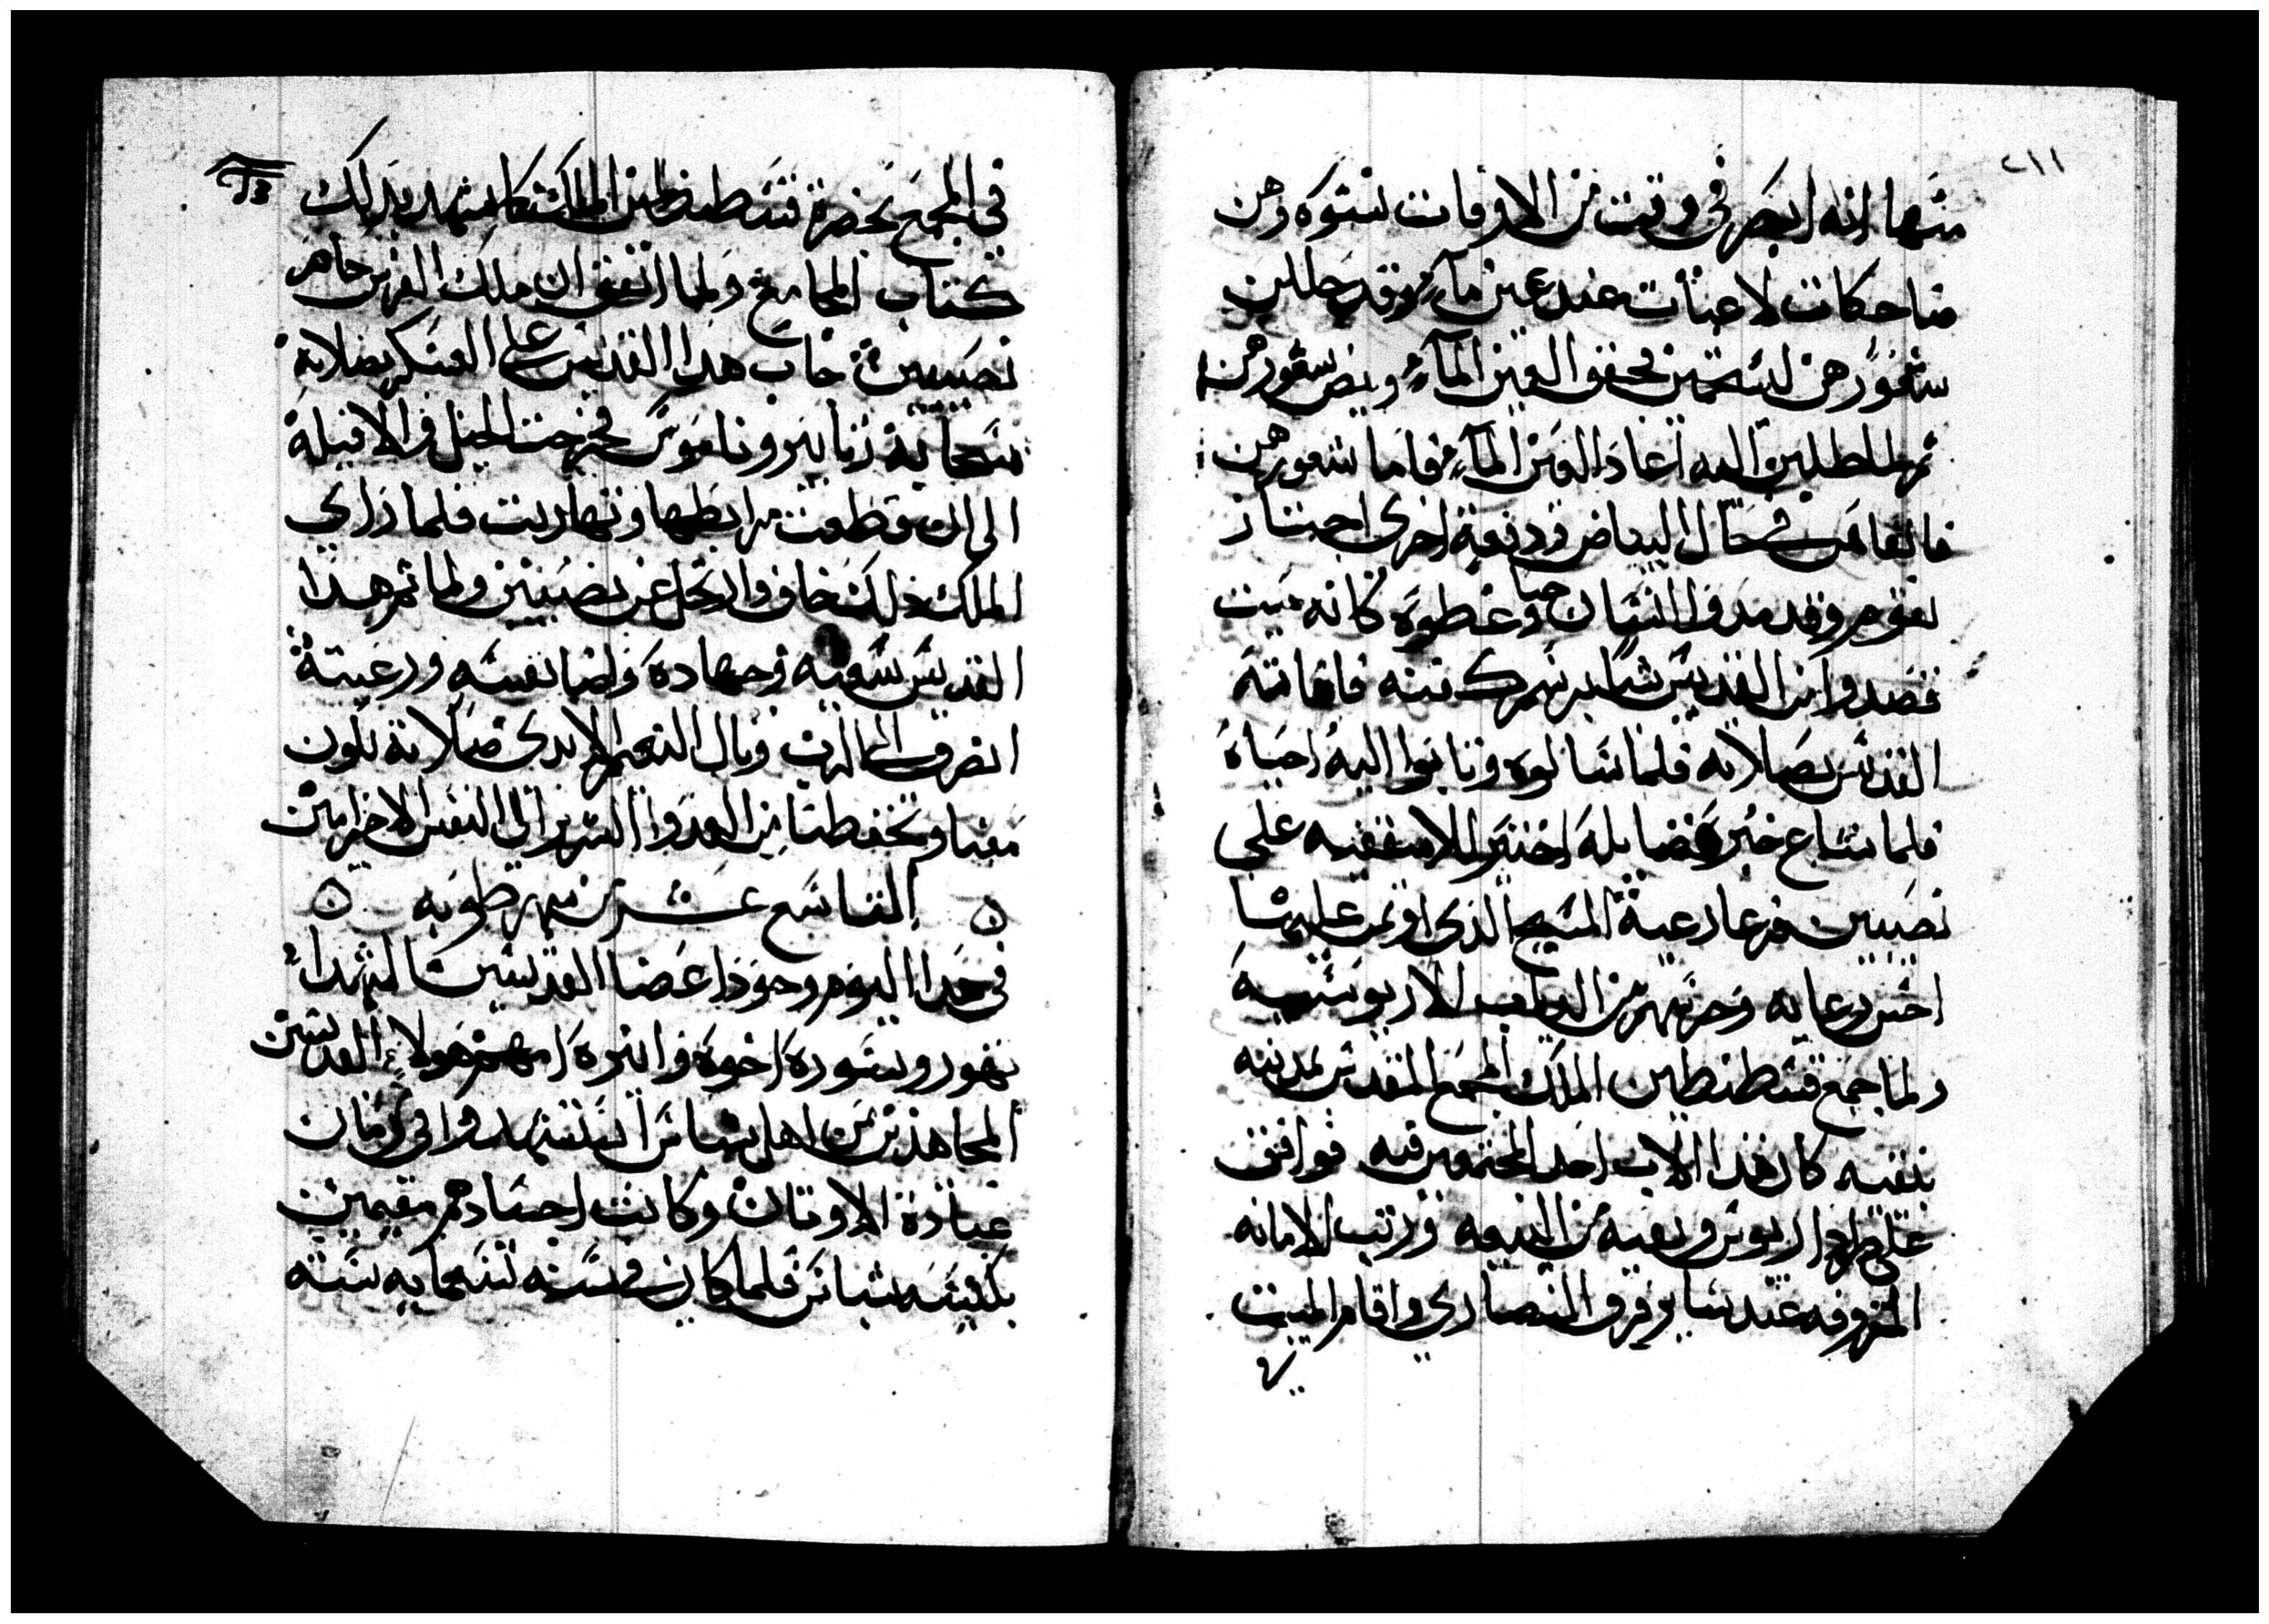 ٢١١
منها انه ابصر في وقت من الاوقات نسوه وهن
ضاحكات لاعبات عند عين مآء وقد حللن
شعورهن ليستحمين فجفف العين المآء وبيض شعورهن
ثم لما طلبن اليه اعاد العين المآء فاما شعورهن
فابقاهم في حال البياض ودفعة اخري اجتاز
بقوم وقد مددوا انسان حيا وغطوه كانه ميت
قصدوا من القديس شيا برسم كفنه فاماته
القديس بصلاته فلما سالوه وتابوا اليه احياه
فلما شاع خبر فضايله اختير للاسقفيه علي
نصيبين فرعا رعية المسيح الذي اوتمن عليها
احسن رعايه وحرسهم من الدياب الاريوسيه
ولما جمع قسطنطين الملك المجمع المقدس بمدينه
نيقيه كان هذا الاب احد المجتمعين فيه فوافق
علي حرم اريوس ونفيه من البيعه ورتب الامانه
المعروفه عند ساير فرق النصاري واقام الميت
في المجمع بحضرة قسطنطين الملك كما يشهد بذلك
كتاب المجامع ولما اتفق ان ملك الفرس حاصر
نصيبين جاب هذا القديس علي العسكر بصلاته
سحابة زنابير وناموس فجرحت الخيل والافيله
الي ان قطعت مرابطها وتهاربت فلما راي
الملك ذلك خاف وارتحل عن نصيبين ولما تم هذا
القديس سعيه وجهاده واضا نفسه ورعيته
انصرف الي الرب ونال النعيم الابدي صلاته تكون
معنا وتحفظنا من العدو الشرير الي النفس الاخير امين
التاسع عشر من شهر طوبه
في هذا اليوم وجود اعضا القديسين الشهدا
بهور وبسوره اخوه وانبره امهم هولاء القديسين
المجاهدين من اهل شباس استشهدوا في زمان
عبادة الاوتان وكانت اجسادهم مقيمين
بكنيسه شباس فلما كان في سنه تسعمايه سته